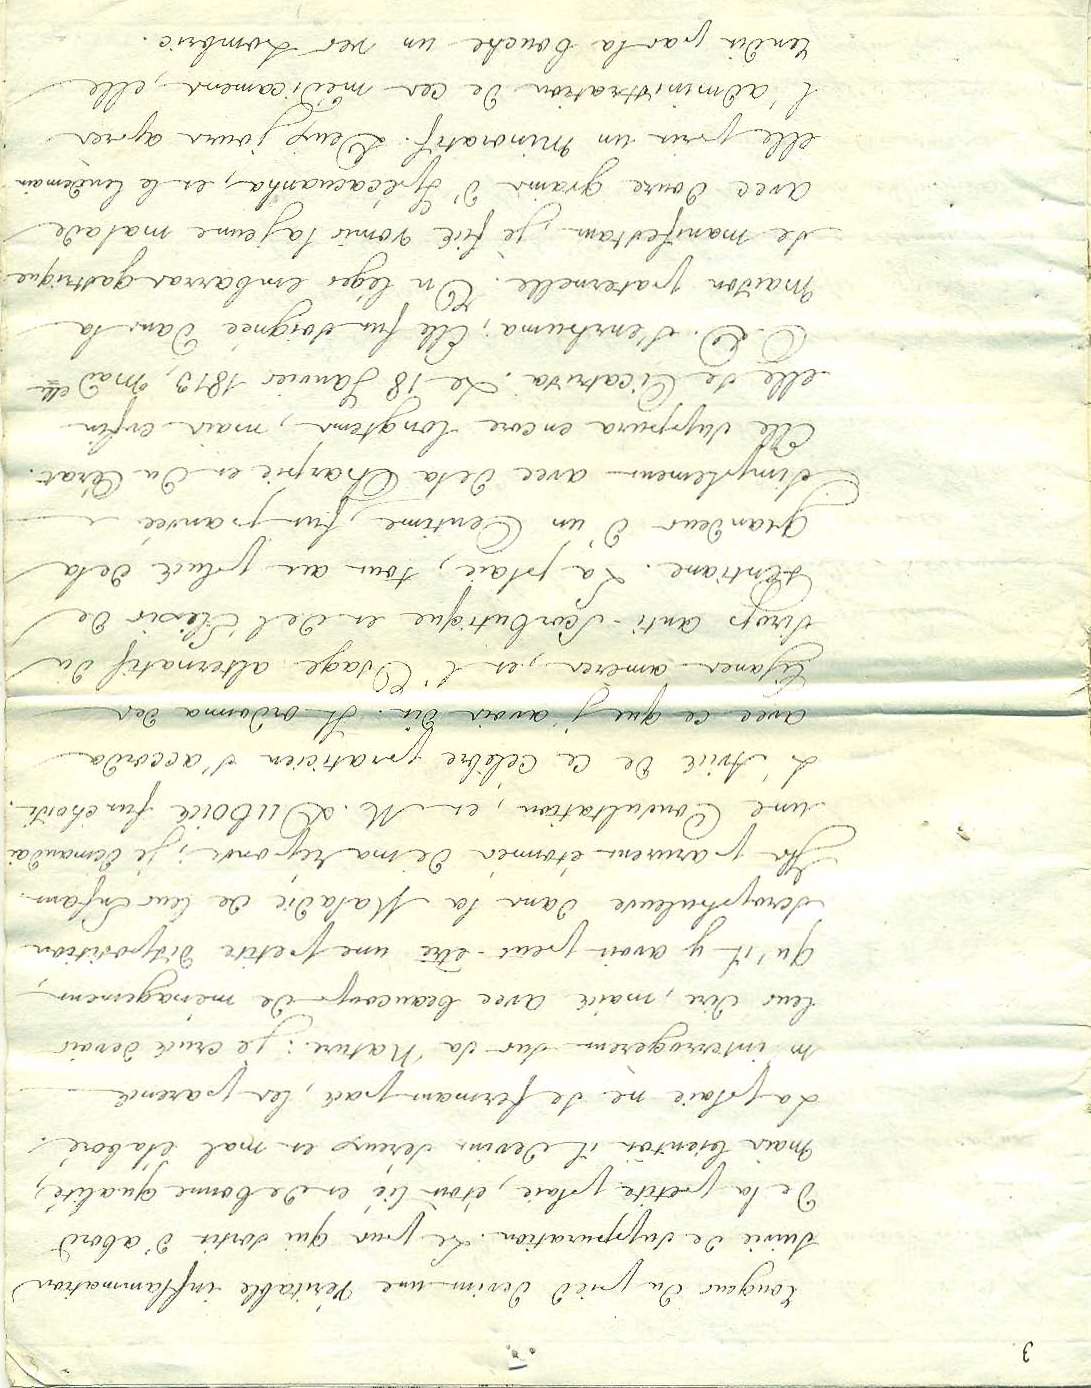 3
rougeur du pied devint une véritable inflammation
suivie de suppuration. Le pus qui sortit d'abord
De la petite plaie, étoit lié et de bonne qualité,
mais bientôt il devint séreux et mal élaboré.
La plaie ne se fermant pas, les parens
m'interrogerent sur sa Nature: je crus devoir
leur dire, mais avec beaucoup de ménagement,
qu'il y avoit peut-être une petite disposition
scrophuleuse dans la Maladie de leur Enfant.
Ils parurent étonnés de ma réponse; je demandai
une Consultation, et M. DUBOIS fut choisi.
L'Avis de ce célèbre praticien s'accorda
avec ce que j'avois dit. Il ordonna des
tisanes amères, et l'Usage alternatif du
Sirop anti-Scorbutique et de l'Elixir de
Gentiane. La plaie, tout au plus de la
grandeur d'un Centime, fut pansée
simplement avec de la Charpie et du Cérat.
Elle suppura encore longtems, mais enfin
elle se Cicatrisa. Le 18 Janvier 1813, Mad.elle
C.D. s'enrhuma; Elle fut soignée Dans la
maison paternelle. Un léger embarras gastrique
se manifestant, je fis vomir la jeune malade
avec douze grains d'Ipécacuanha, et le lendemain
elle prit un minoratif. Deux jours après
l'administration de ces médicamens, elle
rendit par la bouche un ver Lombric.